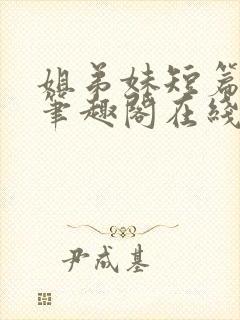 姐弟妹短篇
笔趣阁在线
尹成基